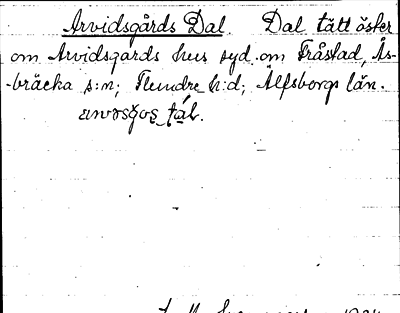 Arvidsgårds Dal. Dal tätt öster
om Arvidsgårds hus syd om Fråstad, Ås-
-bräcka s:n; Flundre h:d; Älfsborgs län.